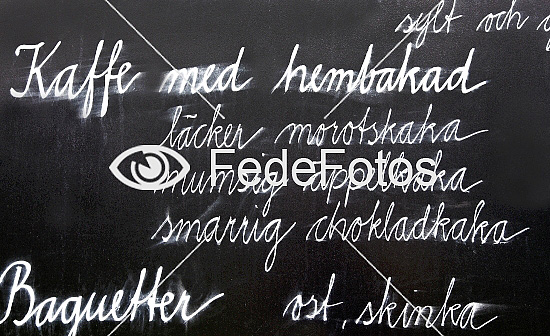 sylt och
Kaffe med hembakad
läcker morotskaka
mumsig äppelkaka
smarrig chokladkaka
Baguetter ost, skinka
FedeFotos